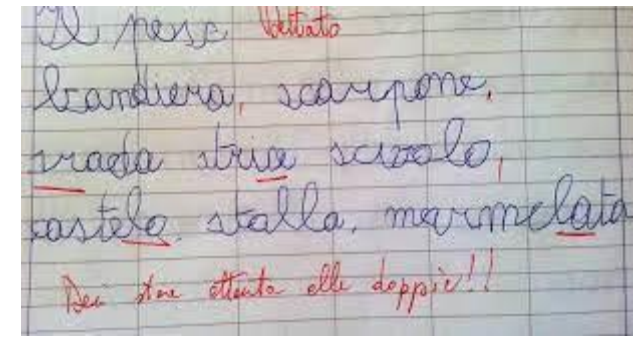 Il pesc Dettato
bandiera, scarpone,
srada stria scivolo,
castelo, stalla, marmelata
Devi stare attento alle doppie!!